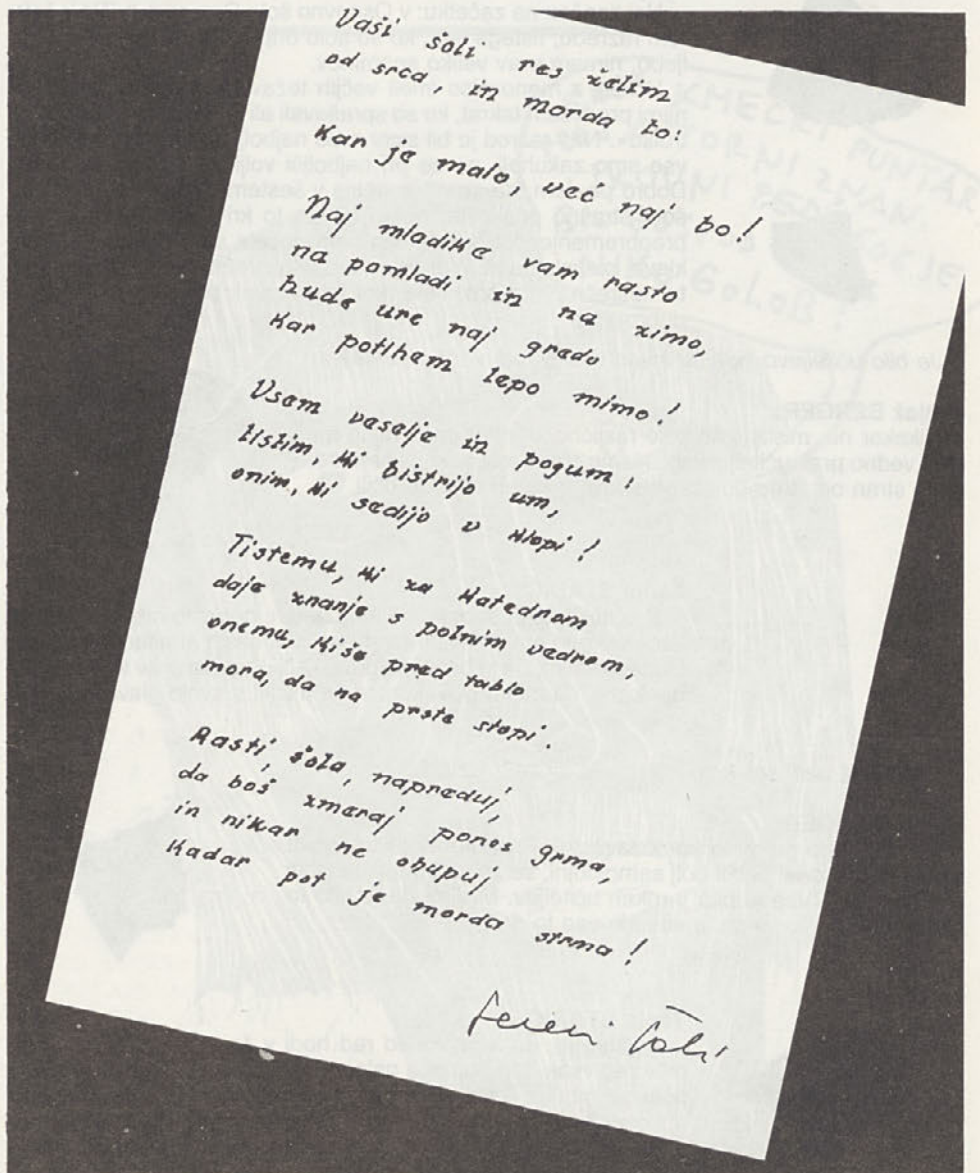 Vaši šoli res želim
od srca, in morda to:
Kar je malo, več naj bo!
Naj mladike vam rasto
na pomladi in na zimo,
hude ure naj gredo
kar potlhem lepo mimo!
Vsem veselje in pogum!
tistim, ki bistrijo um,
onim, ki sedijo v klopi!
Tistemu, ki za katedrom
daje znanje s polnim vedrom,
onemu, ki še pred tablo
mora, da na prste stopi.
Rasti, šola, napreduj,
da boš zmeraj ponos grma,
in nikar ne obupuj
kadar pot je morda strma!